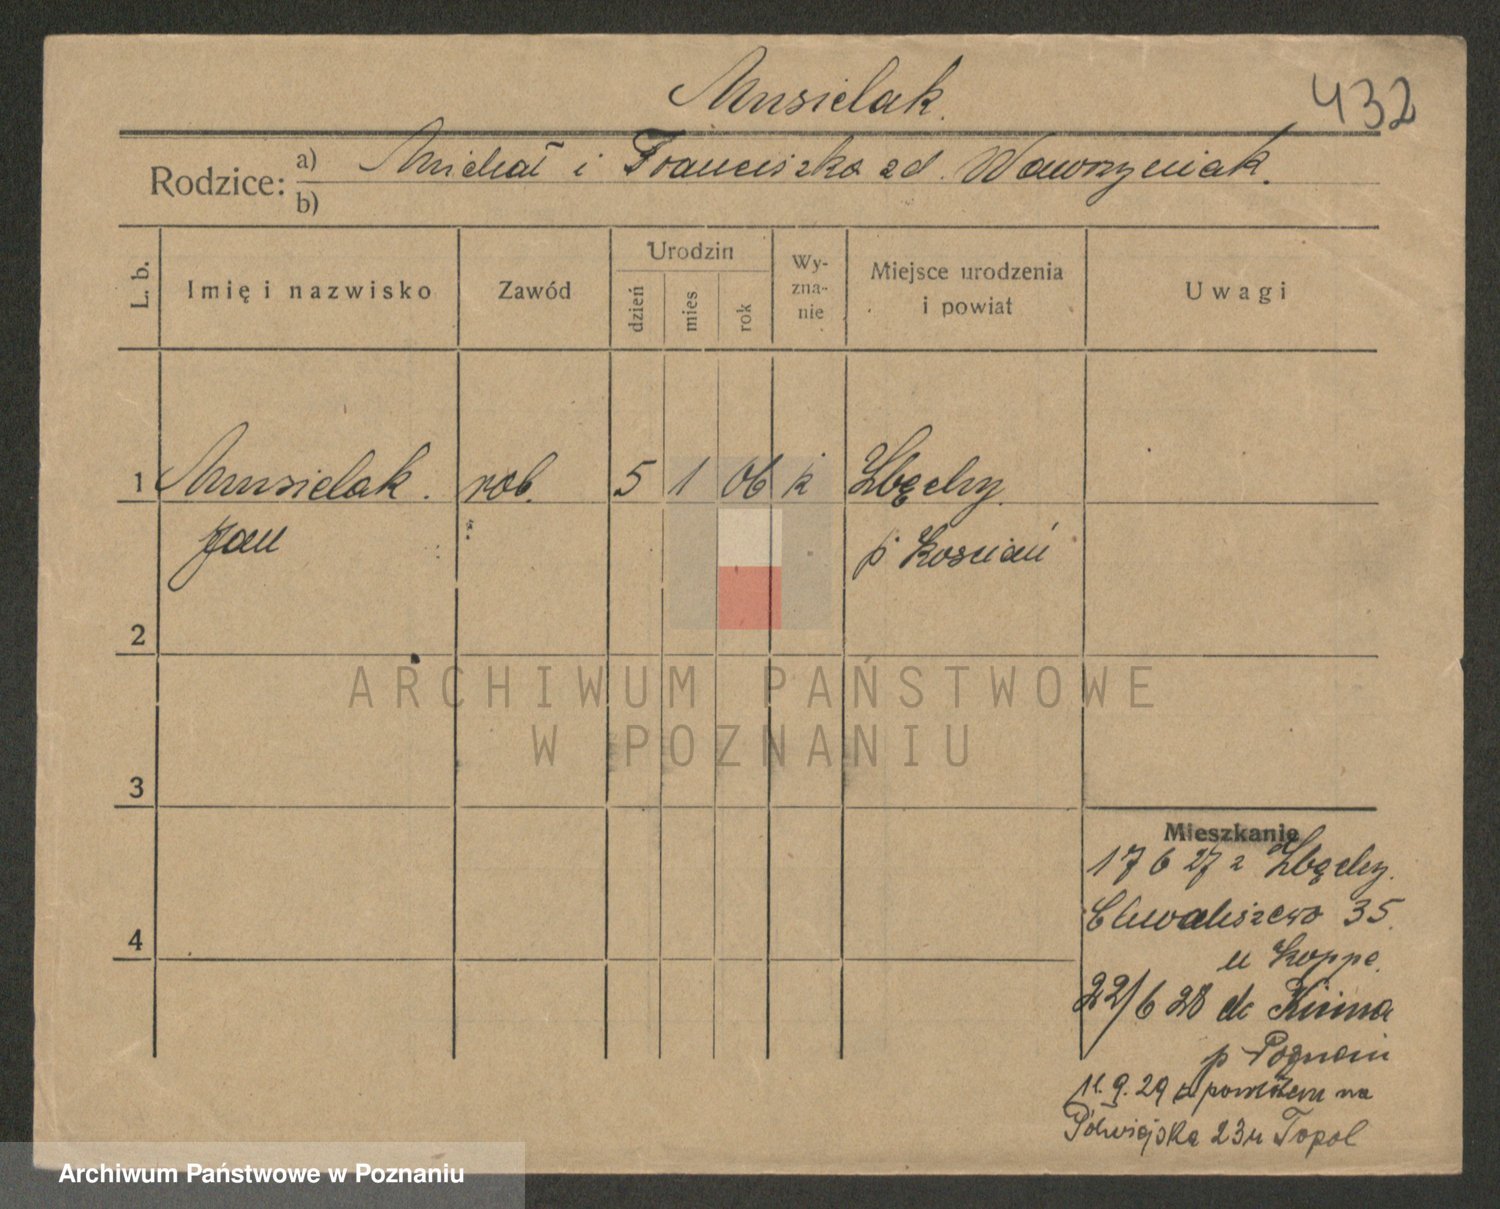 Musielak.
432
Rodzice:
a) Michał i Franciszka zd. Wawrzyniak.
b)
L. b.
Imię i nazwisko
Zawód
Urodzin
dzień
mies
rok
Wy-
zna-
nie
Miejsce urodzenia
i powiat
Uwagi
1 Musielak. rob. 5 1 06 k Zbęchy.
Jan p. Kościań
2
ARCHIWUM PAŃSTWOWE
W POZNANIU
3
Mieszkanie
17 6 27 z Zbęchy.
Chwaliszewo 35.
4
u Koppe.
22/6 28 do
p Poznań
11. 9. 29 z powrotem na
Półwiejska 23 u Topol
Archiwum Państwowe w Poznaniu